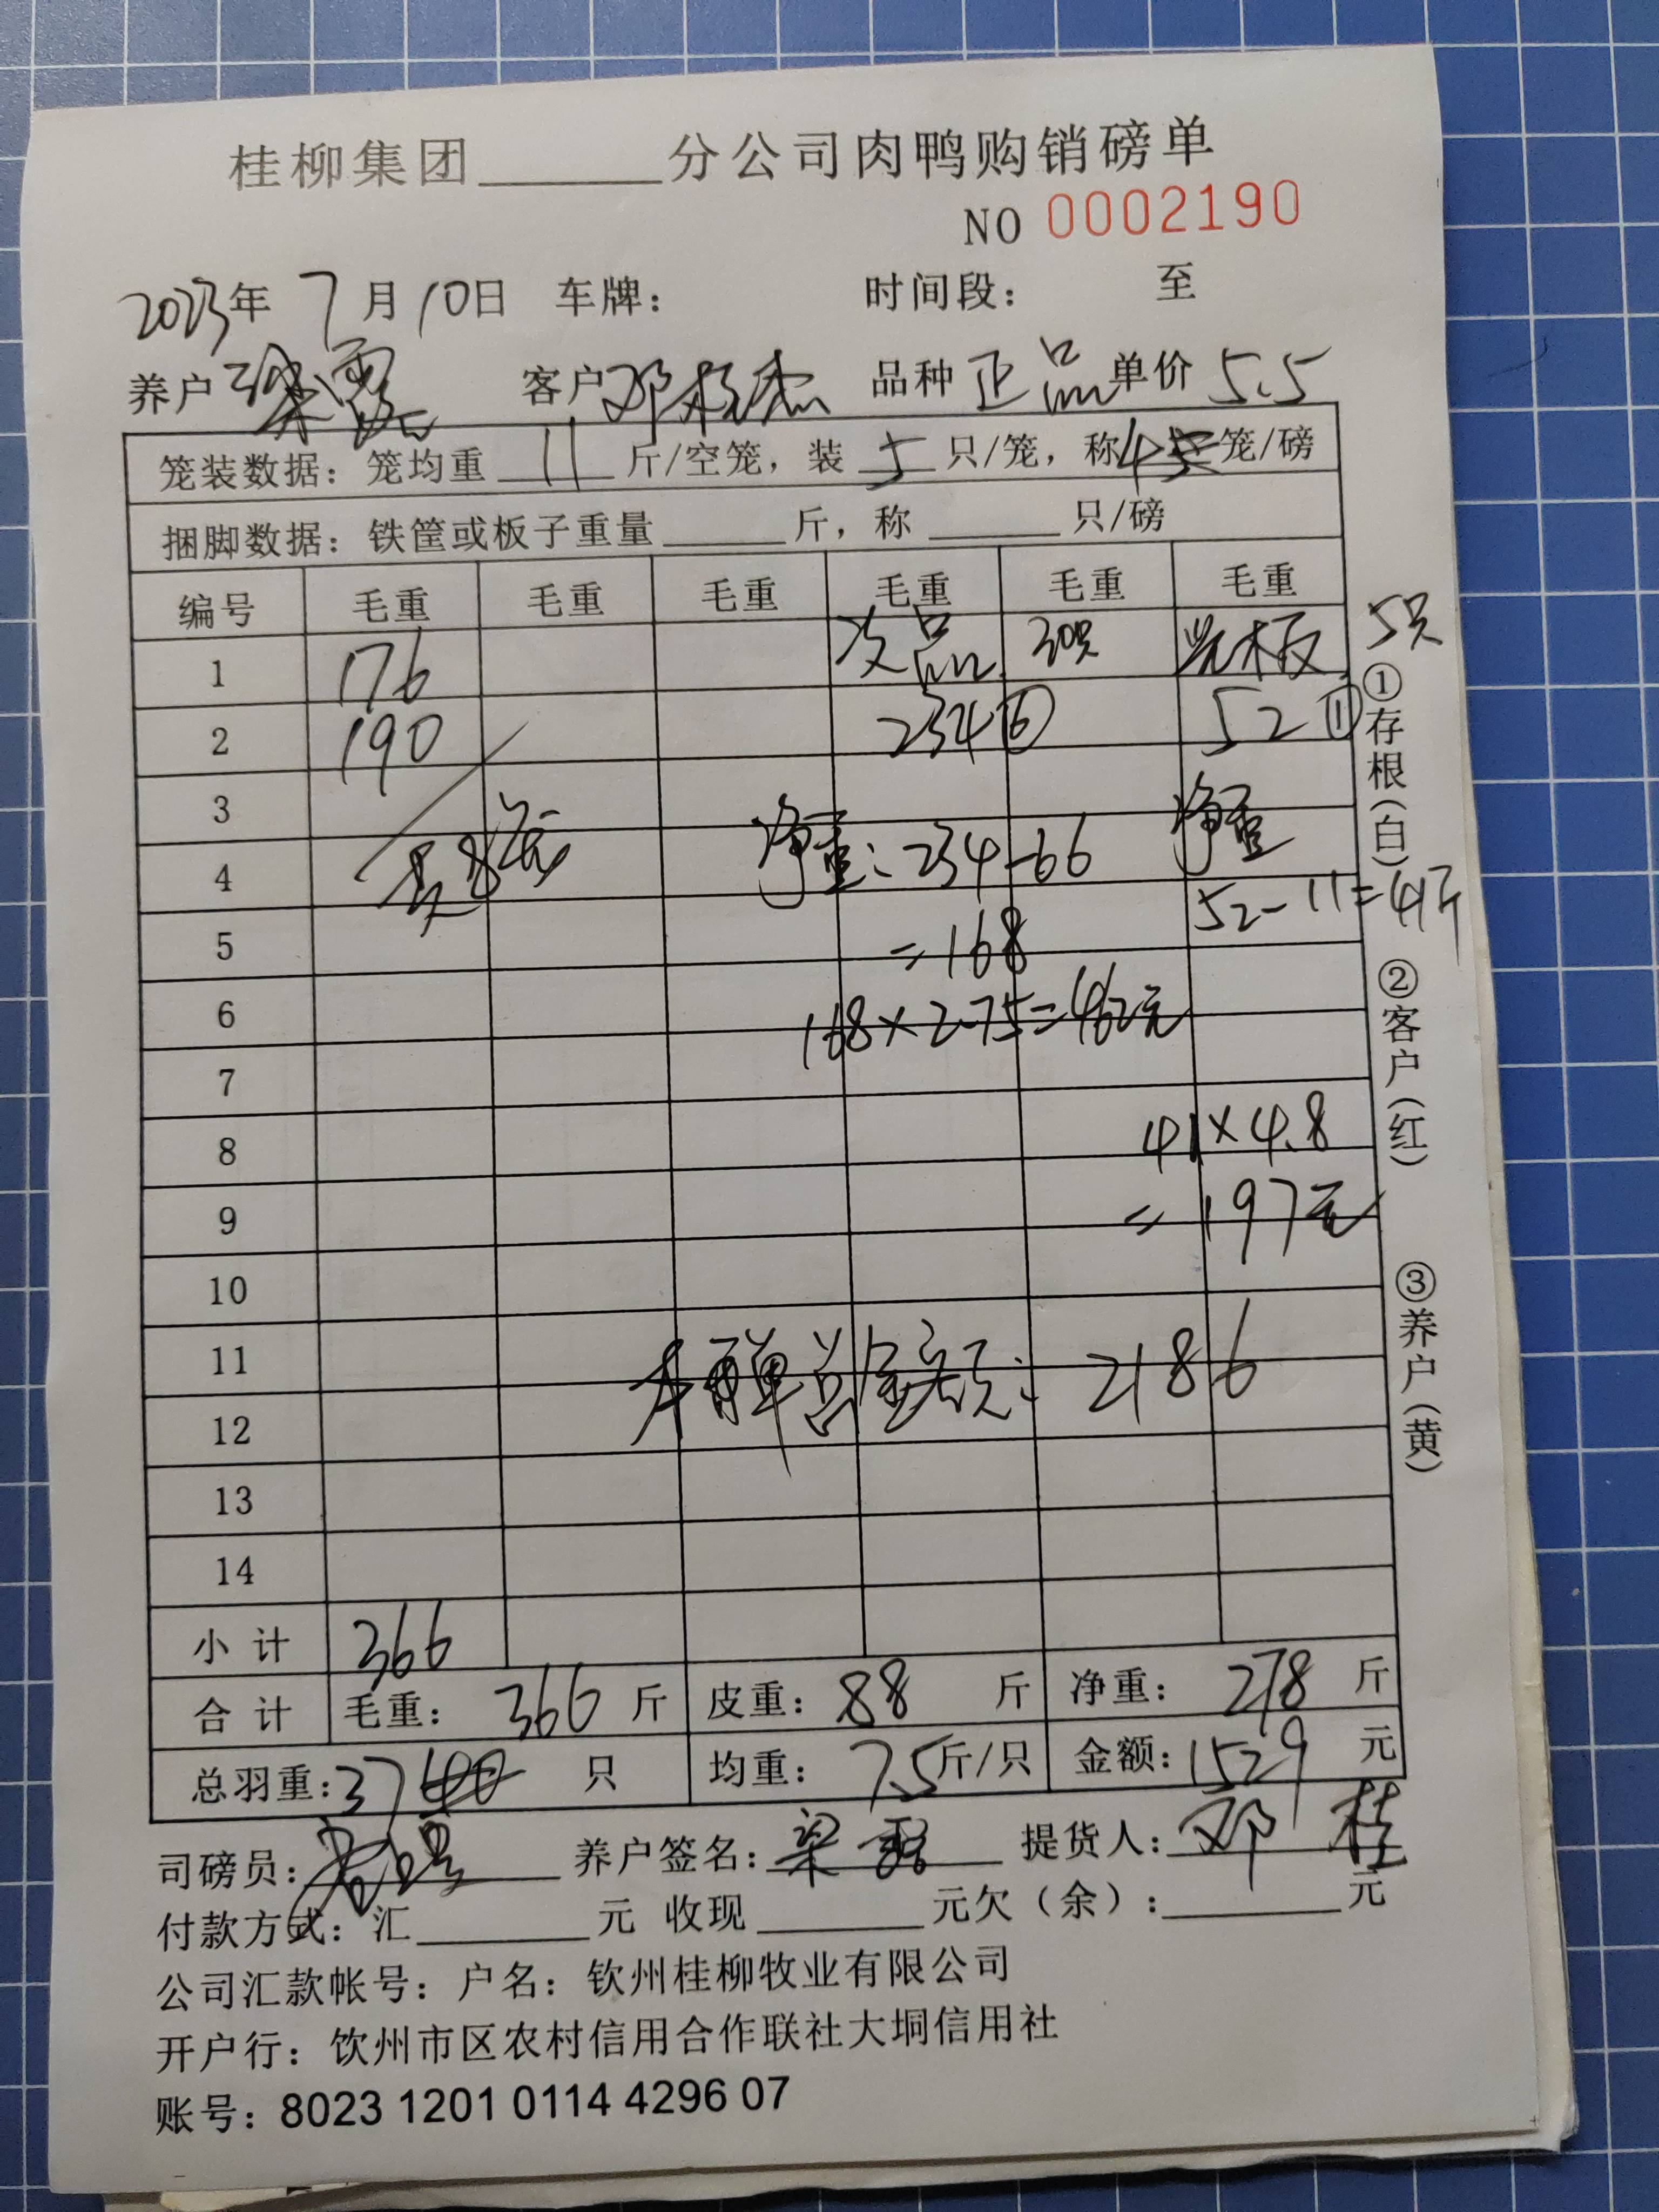 桂柳集团______分公司肉鸭购销磅单
NO 0002190
2023年 7月10日 车牌： 时间段： 至
养户 梁 客户 邓 杰 品种 正品 单价 5.5
笼装数据：笼均重 11 斤/空笼，装 5 只/笼，称 4 笼/磅
捆脚数据：铁筐或板子重量______斤，称______只/磅
编号 毛重 毛重 毛重 毛重 毛重 毛重
1 176 次品 30只 光板 5只
2 190 234⑥ 52①
3
4 共8笼 净重：234-66 净重
52-11=41斤
5 =168
6 168×2.75=462元
7
8 41×4.8
9 =197元
10
11 本单总金额：2186
12
13
14
小计 366
合计 毛重：366 斤 皮重：88 斤 净重：278 斤
总羽重：37 只 均重：7.5斤/只 金额：1529 元
司磅员： 养户签名：梁 提货人：邓 桂
付款方式：汇______元 收现______元欠（余）：______元
公司汇款帐号：户名：钦州桂柳牧业有限公司
开户行：饮州市区农村信用合作联社大垌信用社
账号：8023 1201 0114 4296 07
①存根（白）
②客户（红）
③养户（黄）